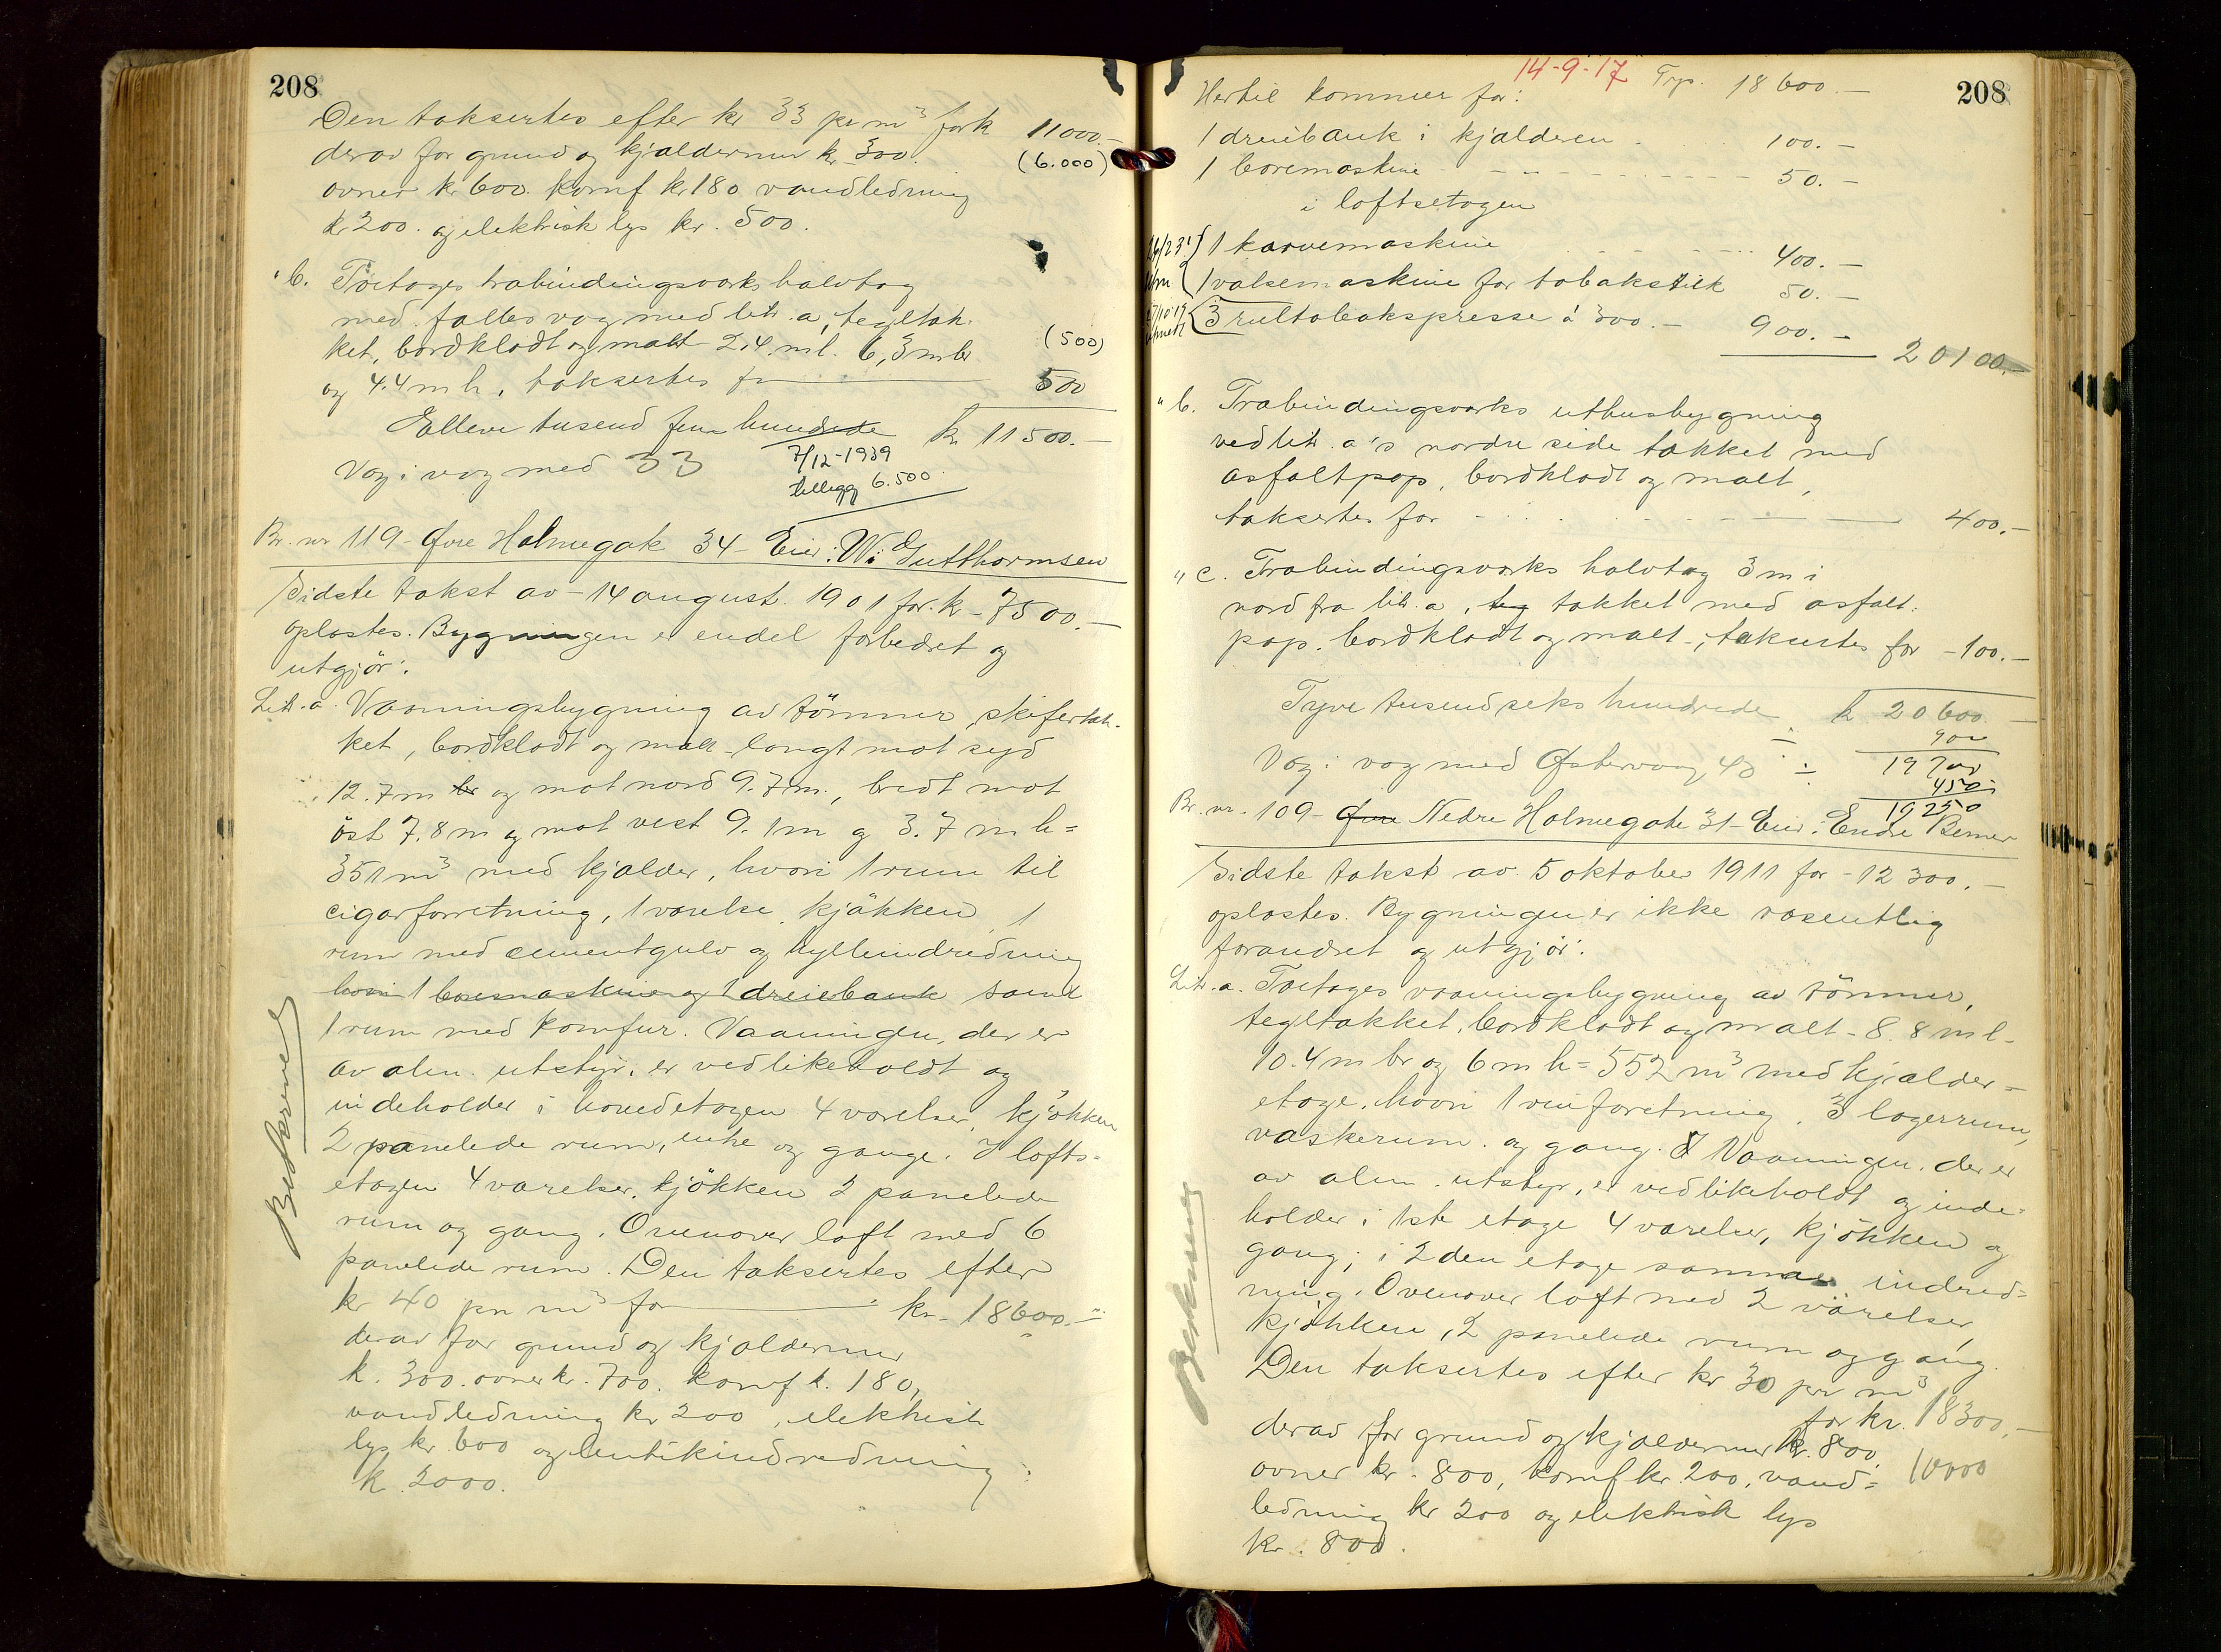 208
Den taksertes efter kr 33 pr m³ for k 11000.-
derav for grund og kjældermur kr. 300. (6.000)
ovner kr 600. komf kr 180 vandledning
kr 200. og elektrisk lys kr. 500.
" b. Toetages træbindingsværks halvtag
med fælles væg med litr. a, tegltæk-
ket, bordklædt og malt 2,4 m l. 6,3 m br (500)
og 4.4 m h. taksertes for 500
Elleve tusend fem hundrede kr 11500.-
Væg i væg med 33
7/12-1939
tillegg 6.500
Br. nr 119 - Øvre Holmegate 34 - Eier: W. Gutthormsen
Sidste takst av - 14 august. 1901 for kr - 7500.-
oplæstes. Bygningen er endel forbedret og
utgjör:
Litr. a. Vaaningsbygning av tömmer, skifertæk-
ket, bordklædt og malt - langt mot syd
12.7 m br og mot nord 9.7 m., bredt mot
öst 7.8 m og mot vest 9.1 m og 3.7 m h =
351 m³ med kjælder, hvori 1 rum til
cigarforretning, 1 værelse, kjökken, 1
rum med cementgulv og hylleindredning
hvori 1 boremaskine og 1 dreiebænk samt
1 rum med komfur. Vaaningen, der er
av alm. utstyr, er vedlikeholdt og
indeholder i hovedetagen 4 værelser, kjökken
2 panelede rum, entre og gange. I lofts-
etagen 4 værelser, kjökken 2 panelede
rum og gang. Ovenover loft med 6
panelede rum. Den taksertes efter
kr 40 pr m³ for kr - 18600.-
derav for grund og kjældermur
k. 300. ovner kr. 700. komf k. 180,
vandledning kr 200, elektrisk
lys kr 600 og butikindredning
k 2000.
Beskrevne
14-9-17
208
Hertil kommer for: Trp. 18600.-
1 dreiebænk i kjælderen 100.-
1 boremaskine 50.-
i loftsetagen
1 karvemaskine 400.-
1 valsemaskine for tobakstilk 50.-
3 rultobakspresse á 300.- 900.-
20100.-
" b. Træbindingsværks uthusbygning
ved litr. a's nordre side tækket med
asfaltpap, bordklædt og malt,
taksertes for 400.-
" c. Træbindingsværks halvtag 3 m i
nord fra litr. a, teg tækket med asfalt-
pap. bordklædt og malt -, taksertes for - 100.-
Tyve tusend seks hundrede k 20600.-
÷ 900
Væg i væg med Østervaag 43 ÷ 19700
450
19250
Br. nr. 109 - Øvre Nedre Holmegate 31 - Eier: Endre Bemer
Sidste takst av 5 oktober 1911 for - 12300.-
oplæstes. Bygningen er ikke væsentlig
forandret og utgjör:
Litr. a. Toetages vaaningsbygning av tömmer,
tegltækket, bordklædt og malt - 8.8 m l -
10.4 m br og 6 m h = 552 m³ med kjælder-
etage, hvori 1 vinforretning, 3 lagerrum,
vaskerum og gang. Vaaningen, der er
av alm. utstyr, er vedlikeholdt og inde-
holder i 1ste etage 4 værelser, kjökken og
gang; i 2den etage samme indred-
ning. Ovenover loft med 2 værelser,
kjökken, 2 panelede rum og gang.
Den taksertes efter kr 30 pr m³
for kr. 18300.-
derav for grund og kjældermur kr. 800.
ovner kr. 800, komf kr 200, vand- 10000
ledning kr 200 og elektrisk lys
kr. 800.